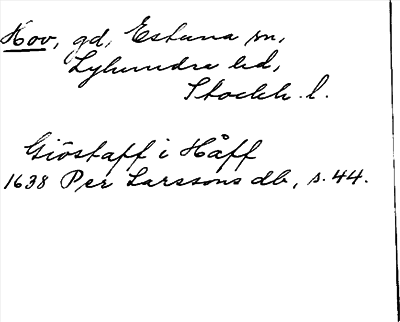 Hov, gd, Estuna sn,
Lyhundra hd,
Stockh. l.
Giöstaff i Håff
1638 Per Larssons db, s. 44.